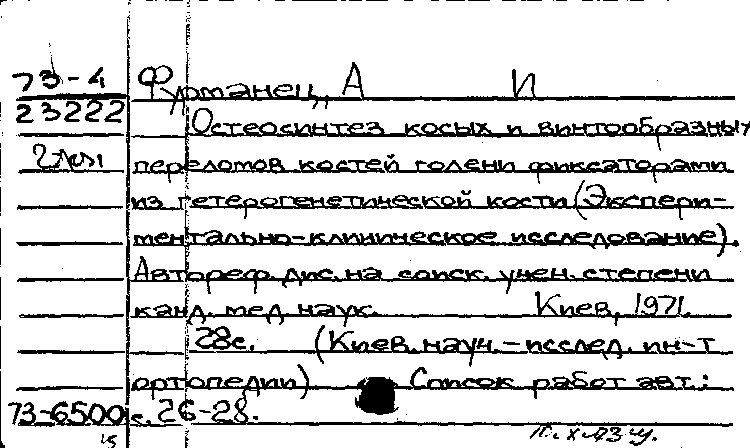 73-4 Фурманец, А И
23222 Остеосинтез косых и винтообразных
переломов костей голени фиксаторами
из гетерогенетической кости (Экспери-
ментально-клиническое исследование).
Автореф. дис. на соиск. учен. степени
канд. мед. наук. Киев, 1971.
28с. (Киев. науч.-исслед. ин-т
ортопедии) Список работ авт.:
73-6500 с. 26-28.